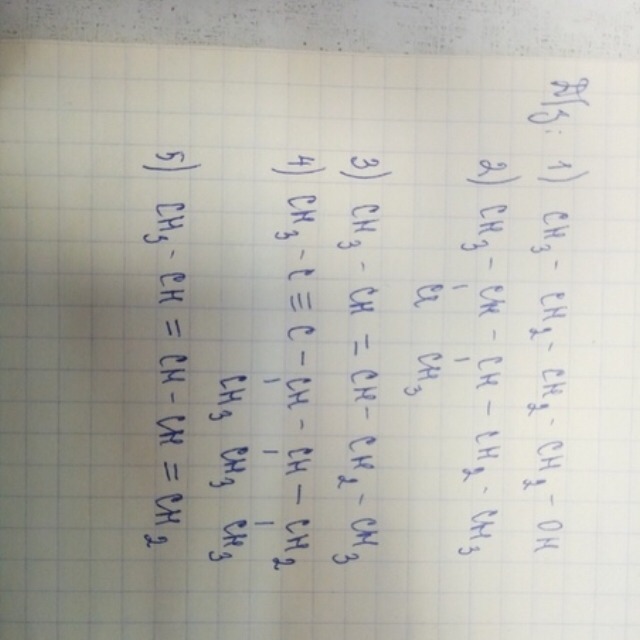 Д/з: 1) CH₃ - CH₂ - CH₂ - CH₂ - OH
2) CH₃ - CH - CH - CH₂ - CH₃
| |
Cl CH₃
3) CH₃ - CH = CH - CH₂ - CH₃
4) CH₃ - C ≡ C - CH - CH - CH₂
| | |
CH₃ CH₃ CH₃
5) CH₃ - CH = CH - CH = CH₂